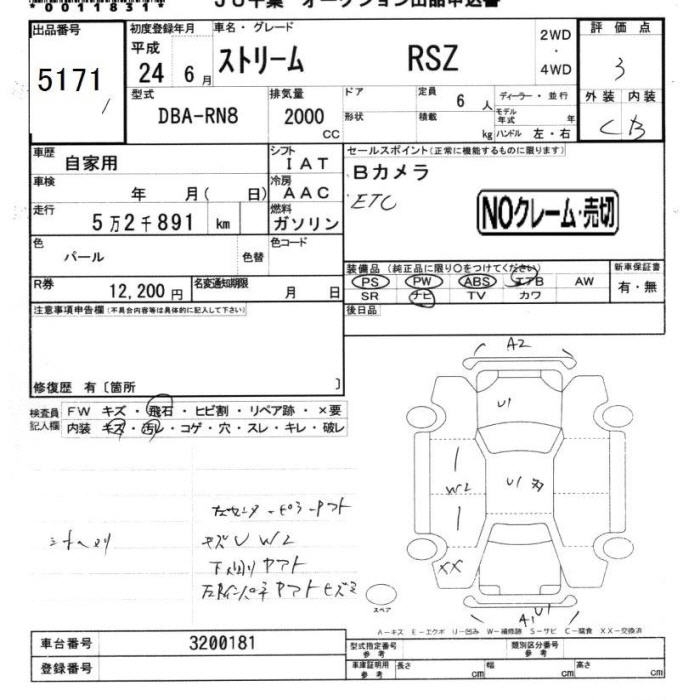 *0011831*
JU千葉 オークション出品申込書
出品番号
5171
初度登録年月
平成
24 6月
車名・グレード
ストリーム RSZ
2WD
・
4WD
評価点
3
型式
DBA-RN8
排気量
2000
CC
ドア
形状
定員
6 人
積載
kg
ディーラー・並行
モデル年式 年
ハンドル 左・右
外装 内装
C B
車歴
自家用
シフト
IAT
セールスポイント(正常に機能するものに限ります)
Bカメラ
ETC
NOクレーム・売切
車検
年 月( 日)
冷房
AAC
走行
5万2千891 km
燃料
ガソリン
色
パール
色替
色コード
装備品(純正品に限り○をつけてください)
PS PW ABS エアB AW
SR ナビ TV カワ
新車保証書
有・無
R券
12,200円
名変通知期限
月 日
後日品
注意事項申告欄(不具合内容等は具体的に記入して下さい)
修復歴 有〔箇所 〕
検査員
記入欄
FW キズ・飛石・ヒビ割・リペア跡・×要
内装 キズ・汚レ・コゲ・穴・スレ・キレ・破レ
A2
U1
W2
U1
XX
キズU W2
下回り ヤフト
A1U1
スペア
A―キズ E―エクボ U―凹み W―補修跡 S―サビ C―腐食 XX―交換済
車台番号
3200181
登録番号
型式指定番号
参考
類別区分番号
参考
車庫証明用
参考
長さ cm
幅 cm
高さ cm